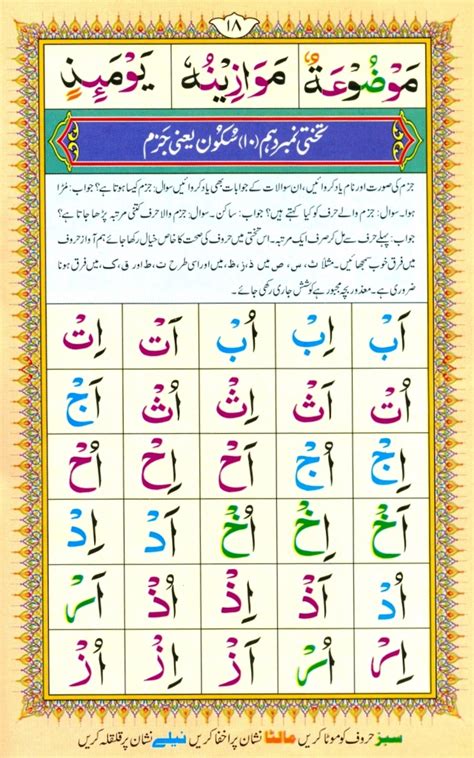 ١٨
مَوْضُوْعَةٌ مَوَازِيْنُهٗ يَوْمَئِذٍ
تختی نمبر دہم (۱۰) سُکُون یعنی جَزم
جزم کی صورت اور نام یاد کروائیں، ان سوالات کے جوابات بھی یاد کروائیں سوال: جزم کیسا ہوتا ہے؟ جواب: مُڑا
ہوا۔ سوال: جزم والے حرف کو کیا کہتے ہیں؟ جواب: ساکن۔ سوال: جزم والا حرف کتنی مرتبہ پڑھا جاتا ہے؟
جواب: پہلے حرف سے مل کر صرف ایک مرتبہ۔ اس تختی میں حروف کی صحت کا خاص خیال رکھا جائے ہم آواز حروف
میں فرق خوب سمجھائیں۔ مثلاً ث، س، ص میں ذ، ز، ظ، میں اور اسی طرح ت، ط اور ق، ک، میں فرق ہونا
ضروری ہے۔ معذور بچہ مجبور ہے کوشش جاری رکھی جائے۔
اَبْ اِبْ اُبْ اَتْ اِتْ
اُتْ اَثْ اِثْ اُثْ اَجْ
اِجْ اُجْ اَحْ اِحْ اُحْ
اَخْ اِخْ اُخْ اَدْ اِدْ
اُدْ اَذْ اِذْ اُذْ اَرْ
اِرْ اُرْ اَزْ اِزْ اُزْ
سبز حروف کو موٹا کریں مالٹا نشان پر اخفا کریں نیلے نشان پر قلقلہ کریں